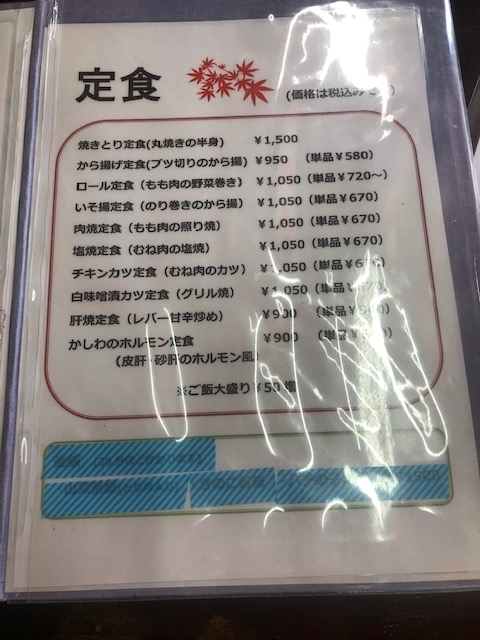 定食
(価格は税込み
焼きとり定食(丸焼きの半身) ￥1,500
から揚げ定食(ブツ切りのから揚) ￥950 (単品￥580)
ロール定食（もも肉の野菜巻き） ￥1,050（単品￥720～）
いそ揚定食（のり巻きのから揚） ￥1,050（単品￥670）
肉焼定食（もも肉の照り焼） ￥1,050（単品￥670）
塩焼定食（むね肉の塩焼） ￥1,050（単品￥670）
チキンカツ定食（むね肉のカツ） ￥1,050（単品
白味噌漬カツ定食（グリル焼） ￥1,050（単品
肝焼定食（レバー甘辛炒め） ￥900 （単品
かしわのホルモン定食 ￥900 （単品
（皮肝・砂肝のホルモン風）
※ご飯大盛り￥50増